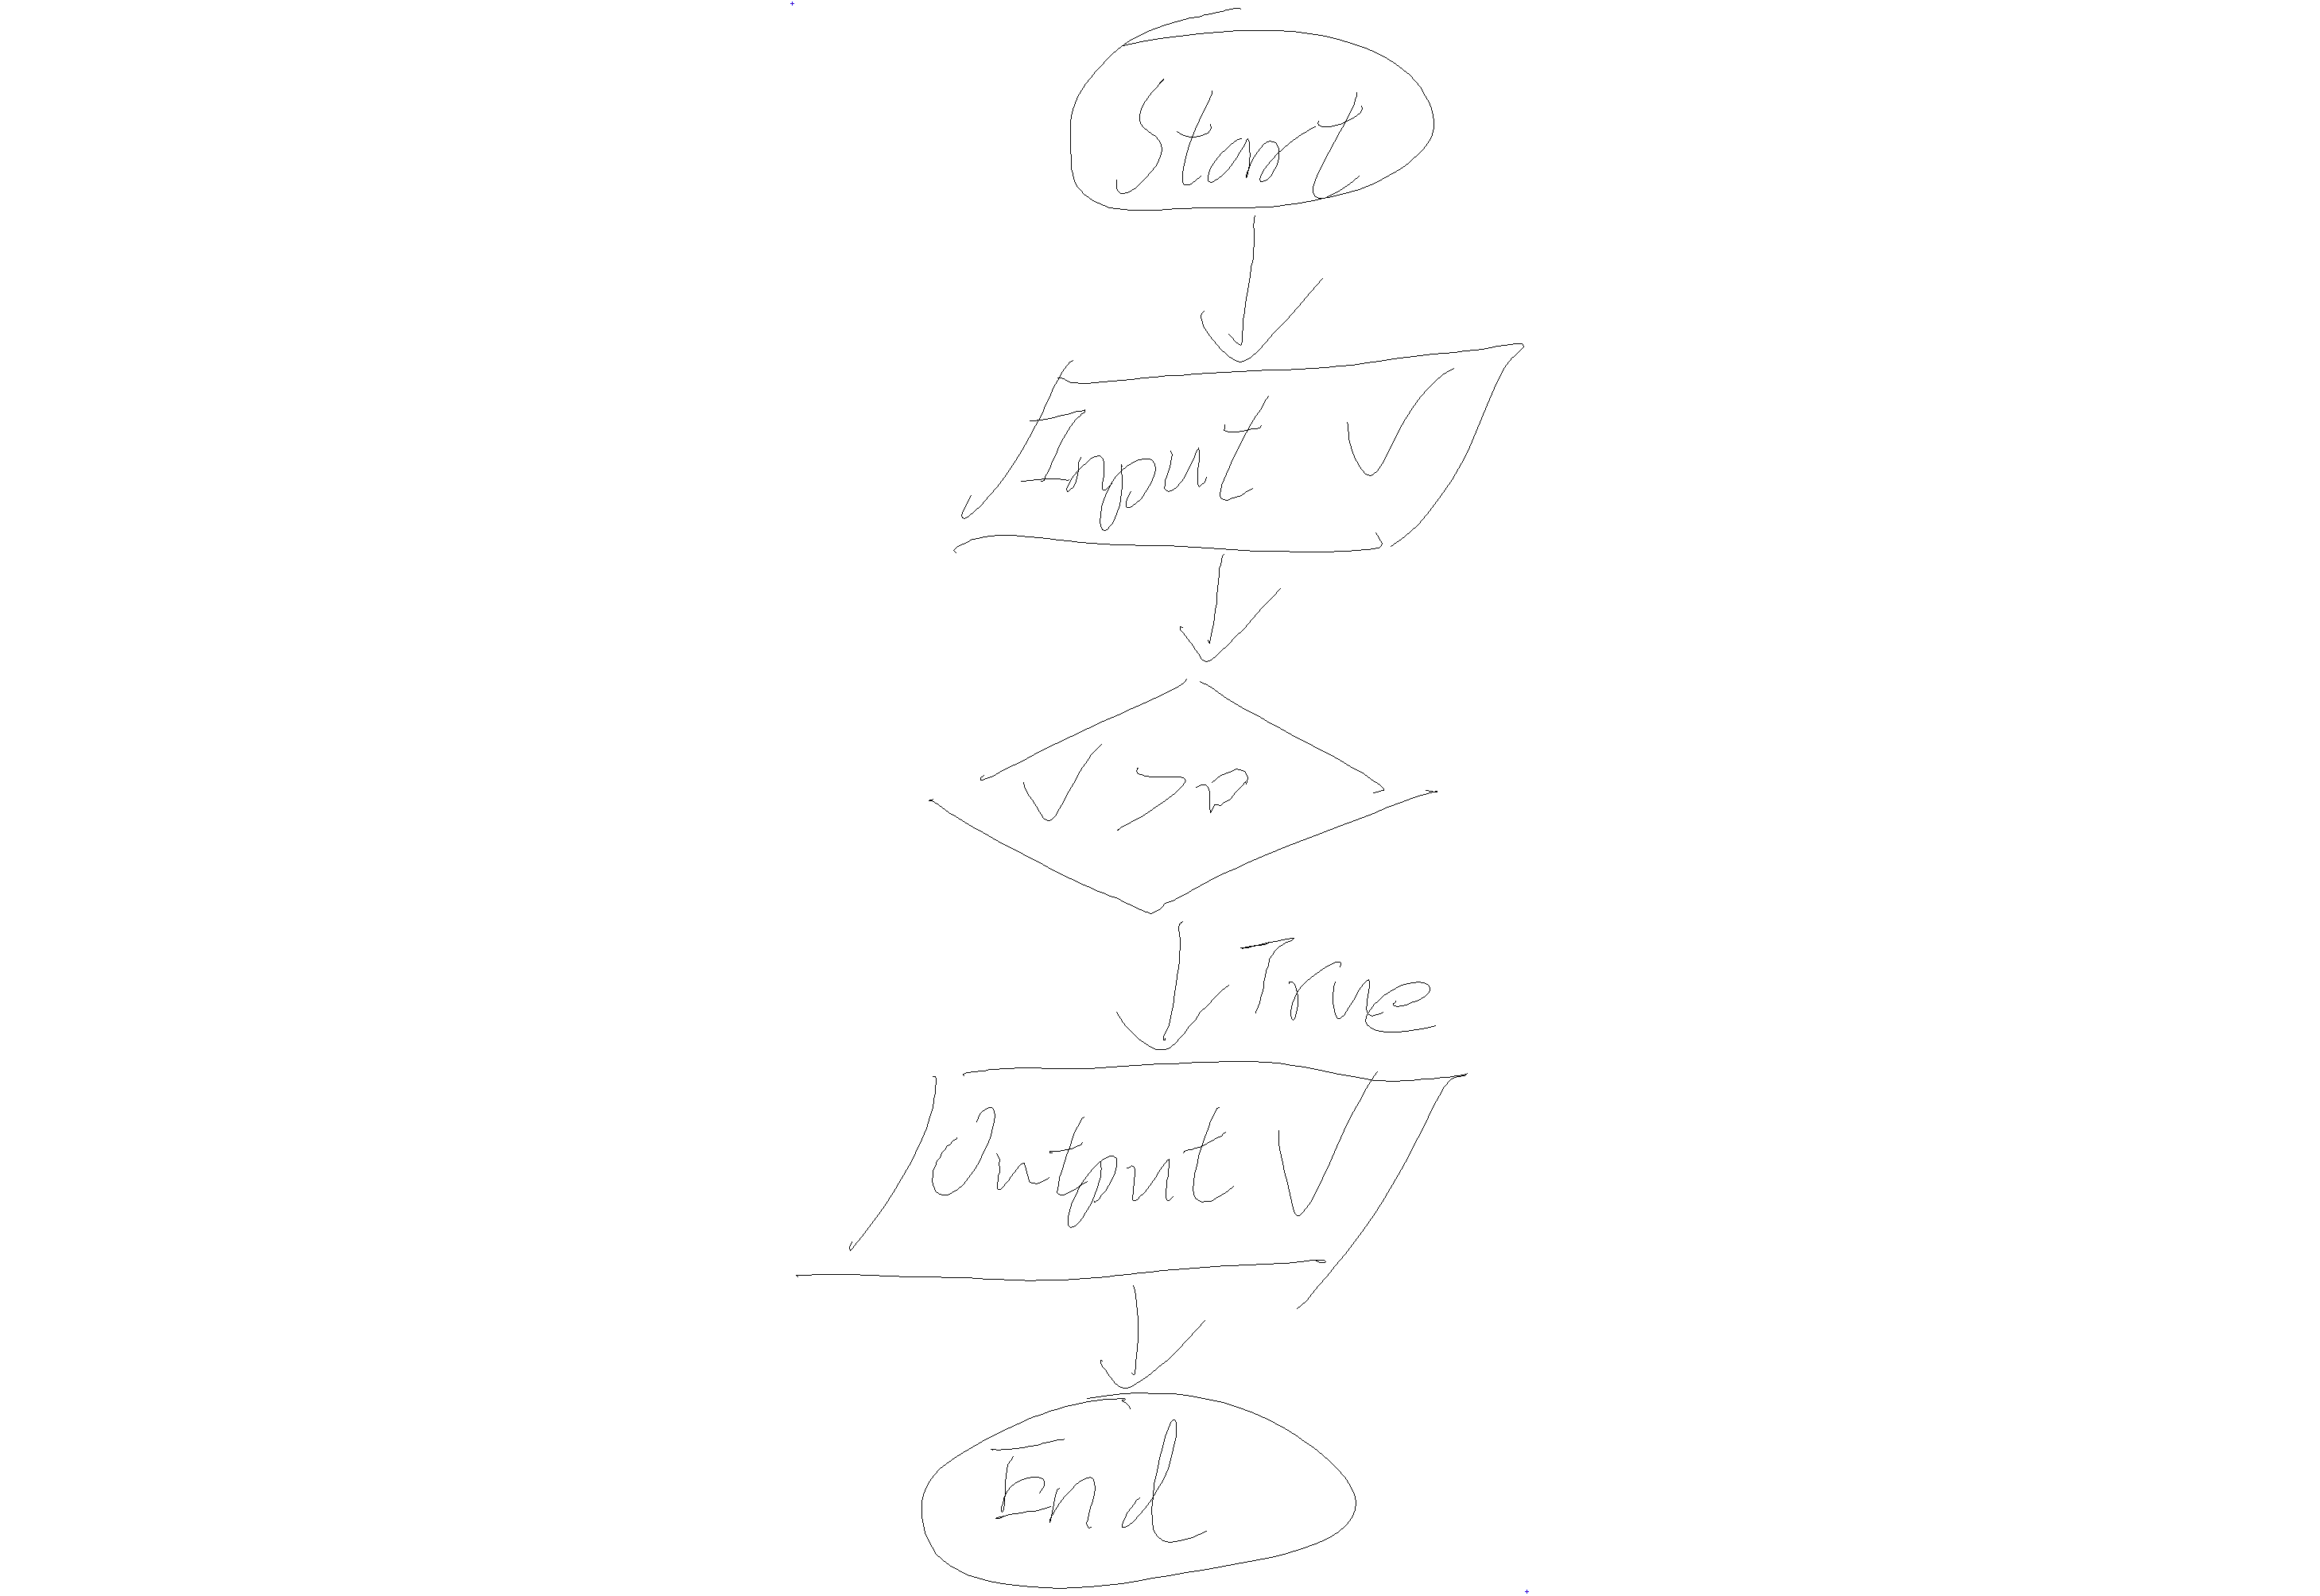 Start
Input V
V >
True
Output V
End